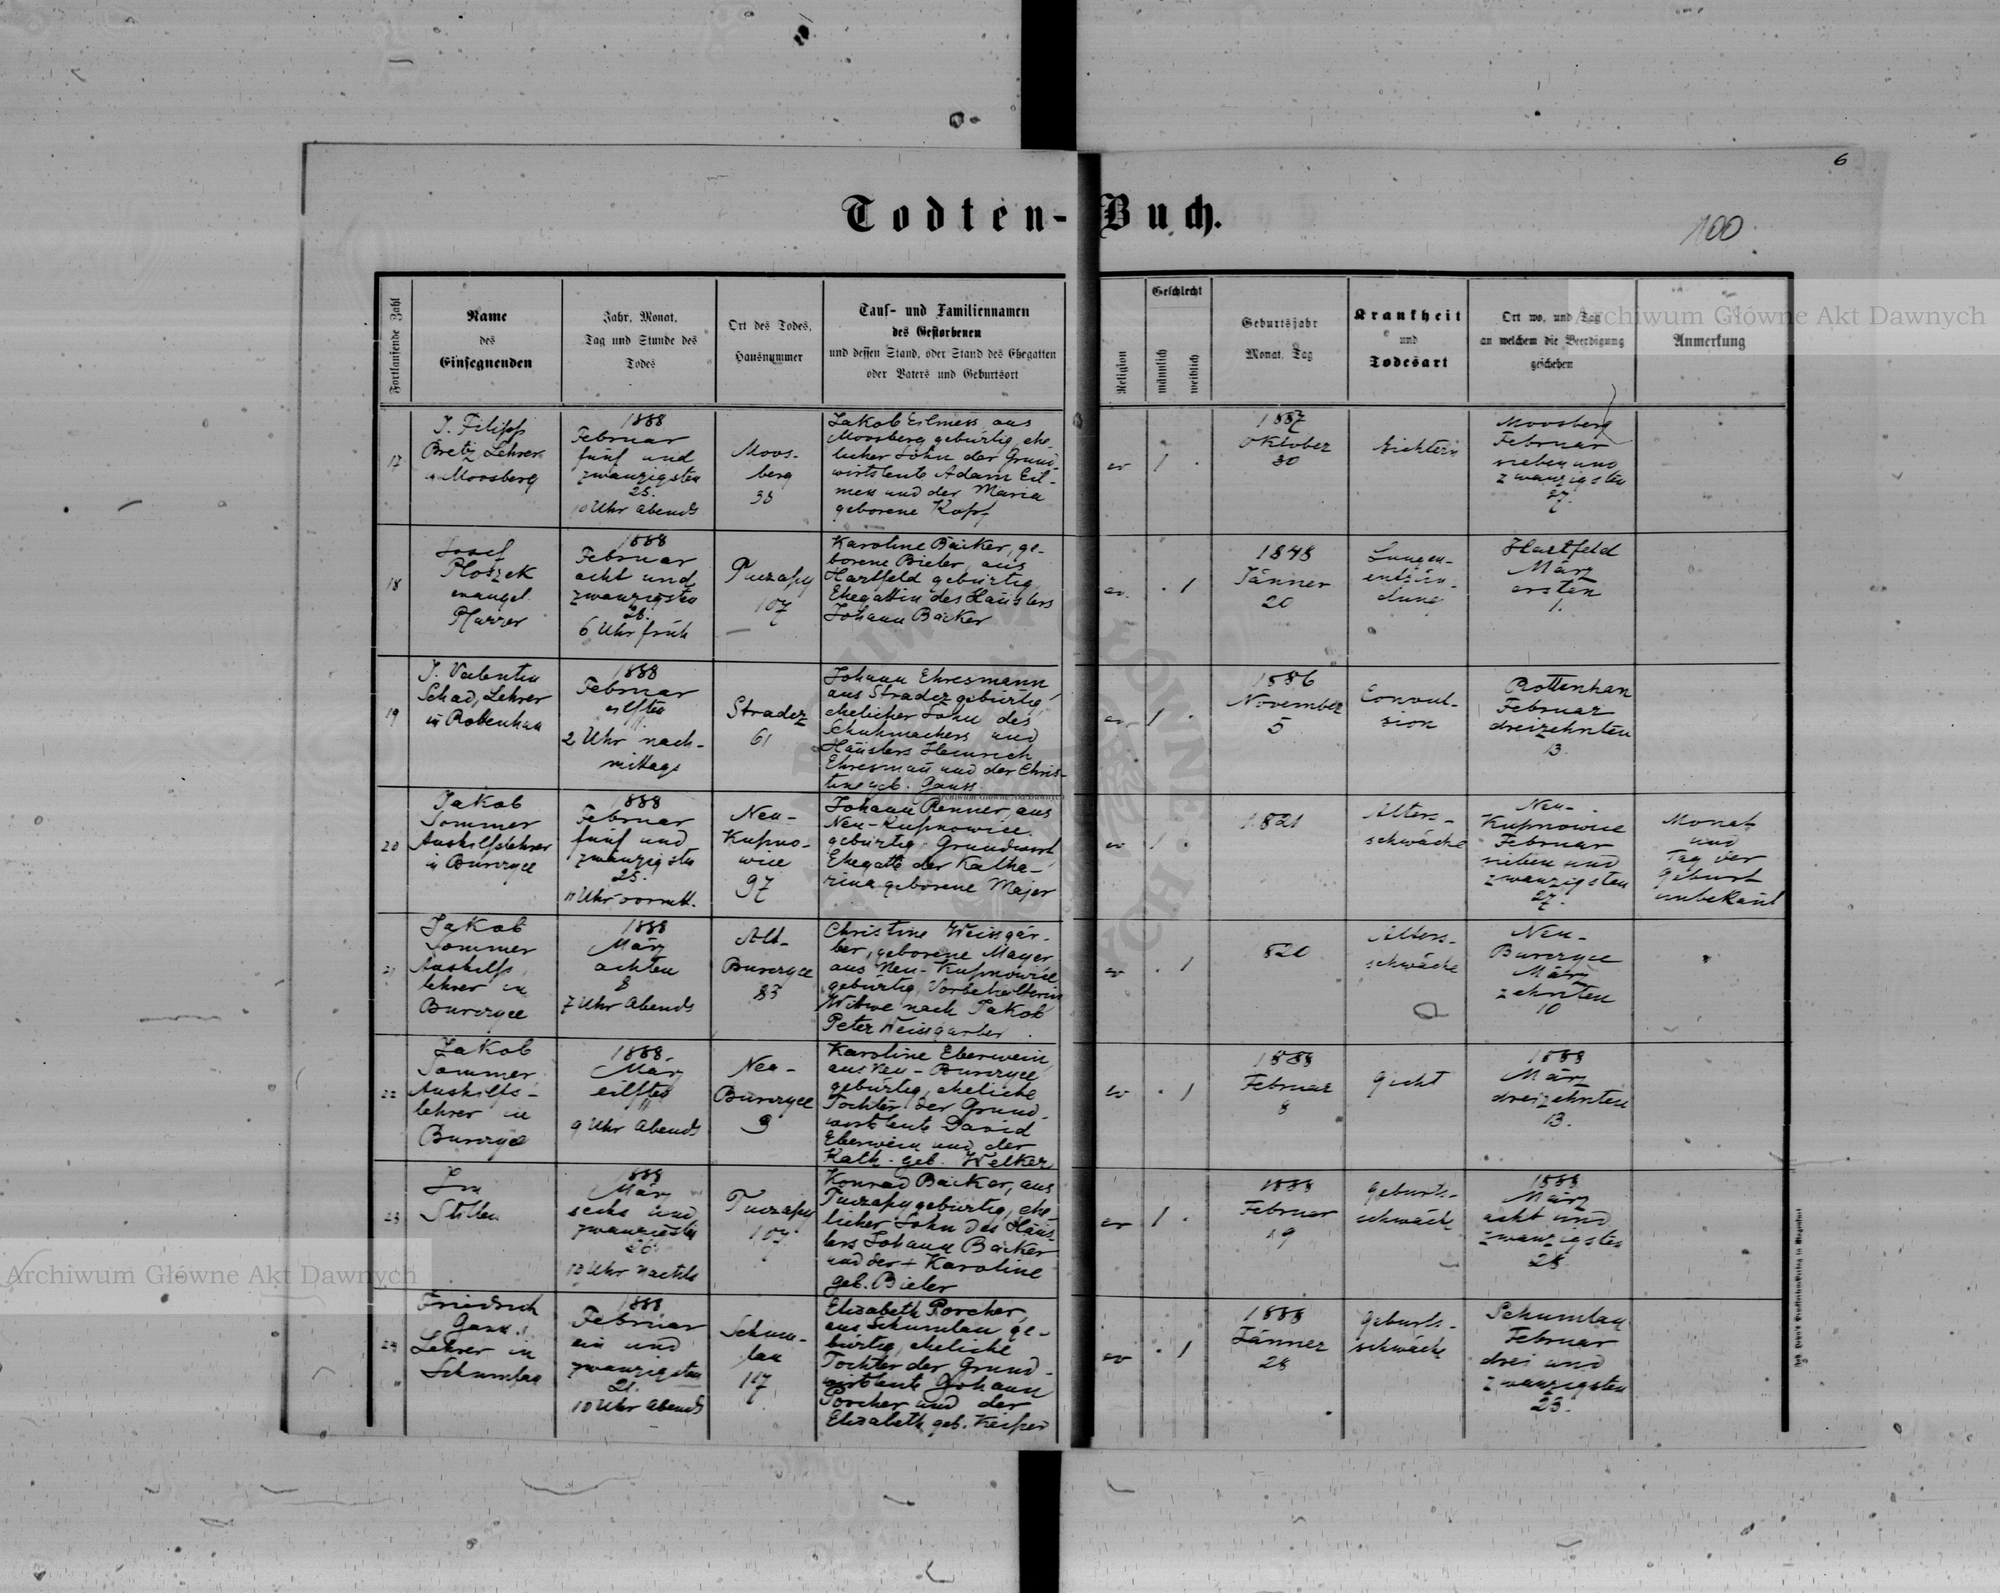 6
Todten-Buch.
100
Fortlaufende Zahl
Name
des
Einsegnenden
Jahr, Monat,
Tag und Stunde des
Todes
Ort des Todes,
Hausnummer
Tauf- und Familiennamen
des Gestorbenen
und dessen Stand, oder Stand des Ehegatten
oder Vaters und Geburtsort
Religion
Geschlecht
männlich
weiblich
Geburtsjahr
Monat, Tag
Krankheit
und
Todesart
Ort wo, und Tag
an welchem die Beerdigung
geschehen
Anmerkung
17
J. Filipp
Bretz, Lehrer
Moosberg
1888
Februar
fünf und
zwanzigsten
25.
10 Uhr Abends
Moos-
berg
38
Jakob Eilmess, aus
Moosberg gebürtig, ehe-
licher Sohn der Grund-
wirtsleute Adam Eil-
mess und der Maria
geborene Kopf
ev
1 .
1887
Oktober
30
Gichtern
Moosberg
Februar
sieben und
zwanzigsten
27.
18
Josef
Ploszek
evangel.
Pfarrer
1888
Februar
acht und
zwanzigsten
28.
6 Uhr früh
Tuczapy
107
Karoline Bäcker, ge-
borene Bieler, aus
Hartfeld gebürtig,
Ehegattin des Häuslers
Johann Bäcker
ev.
. 1
1848
Jänner
20
Lungen-
entzün-
dung
Hartfeld
März
ersten
1.
19
J. Valentin
Schad, Lehrer
in Rottenhan
1888
Februar
eilften
11.
2 Uhr nach-
mittags
Stradez
61
Johann Ehresmann
aus Stradez gebürtig,
ehelicher Sohn des
Schuhmachers und
Häuslers Heinrich
Ehresmañ und der Chris-
tine geb. Gauss.
ev
1 .
1886
November
5
Convul-
sion
Rottenhan
Februar
dreizehnten
13.
20
Jakob
Sommer
Aushilfslehrer
in Burczyce
1888
Februar
fünf und
zwanzigsten
25.
11 Uhr vormitt.
Neu-
Kupno-
wice
97
Johann Renner, aus
Neu-Kupnowice
gebürtig, Grundwirt
Ehegatte der Katha-
rina geborene Majer
ev
1 .
1821
Alters-
schwäche
Neu-
Kupnowice
Februar
sieben und
zwanzigsten
27.
Monat
und
Tag der
Geburt
unbekañt
21
Jakob
Sommer
Aushilfs
lehrer in
Burczyce
1888
März
achten
8
7 Uhr Abends
Alt-
Burczyce
83
Christine Weingär-
ber, geborene Mayer
aus Neu-Kupnowice
gebürtig, Vorbehälterin
Witwe nach Jakob
Peter Weingarber
ev
. 1
820
Alters-
schwäche
Neu-
Burczyce
März
zehnten
10
22
Jakob
Sommer
Aushilfs-
lehrer in
Burczyce
1888.
März
eilften
11
9 Uhr Abends
Neu-
Burczyce
9
Karoline Eberwein,
aus Neu-Burczyce
gebürtig, eheliche
Tochter der Grund-
wirtsleute David
Eberwein und der
Kath. geb. Welker
ev
. 1
1888
Februar
8
Gicht
1888
März
dreizehnten
13.
23
Im
Stillen
1888
März
sechs und
zwanzigsten
26.
12 Uhr Nachts
Tuczapy
107
Konrad Bäcker, aus
Tuczapy gebürtig, ehe
licher Sohn des Häus-
lers Johann Bäcker
und der + Karoline
geb. Bieler
ev
1 .
1888
Februar
19
Geburts-
schwäche
1888
März
acht und
zwanzigsten
28.
24
Friedrich
Lehrer in
Schumlau
1888
Februar
ein und
zwanzigsten
21.
10 Uhr Abends
Schum-
lau
117
Elisabeth Porcher,
aus Schumlau ge-
bürtig, eheliche
Tochter der Grund-
wirtsleute Johann
Porcher und der
Elisabeth geb. Keiper
ev
. 1
1888
Jänner
28
Geburts-
schwäche
Schumlau
Februar
drei und
zwanzigsten
23.
Archiwum Główne Akt Dawnych
Archiwum Główne Akt Dawnych
Archiwum Główne Akt Dawnych